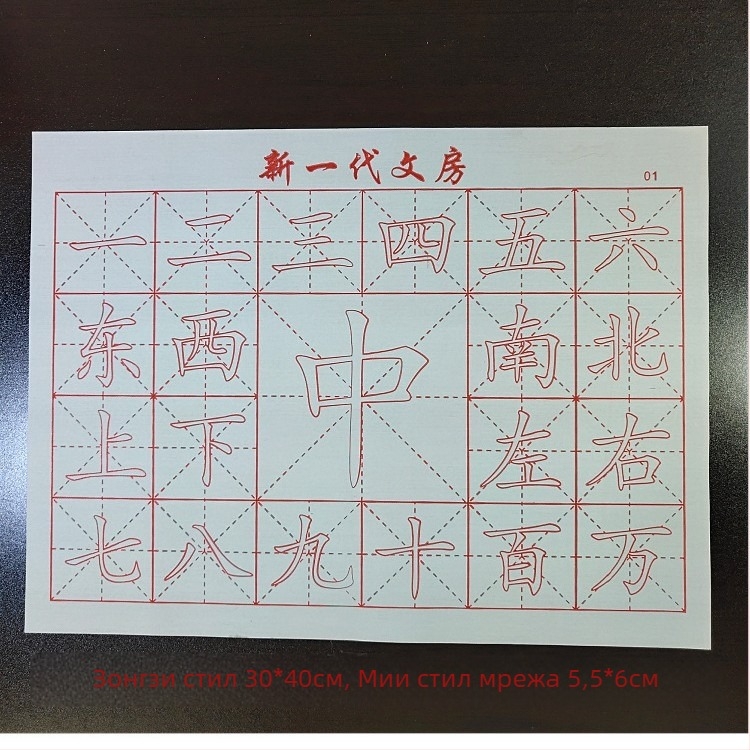 新一代文房
01
一 二 三 四 五 六
东 西 中 南 北
上 下 左 右
七 八 九 十 百 万
Зонгзи стил 30*40см, Мии стил мрежа 5,5*6см